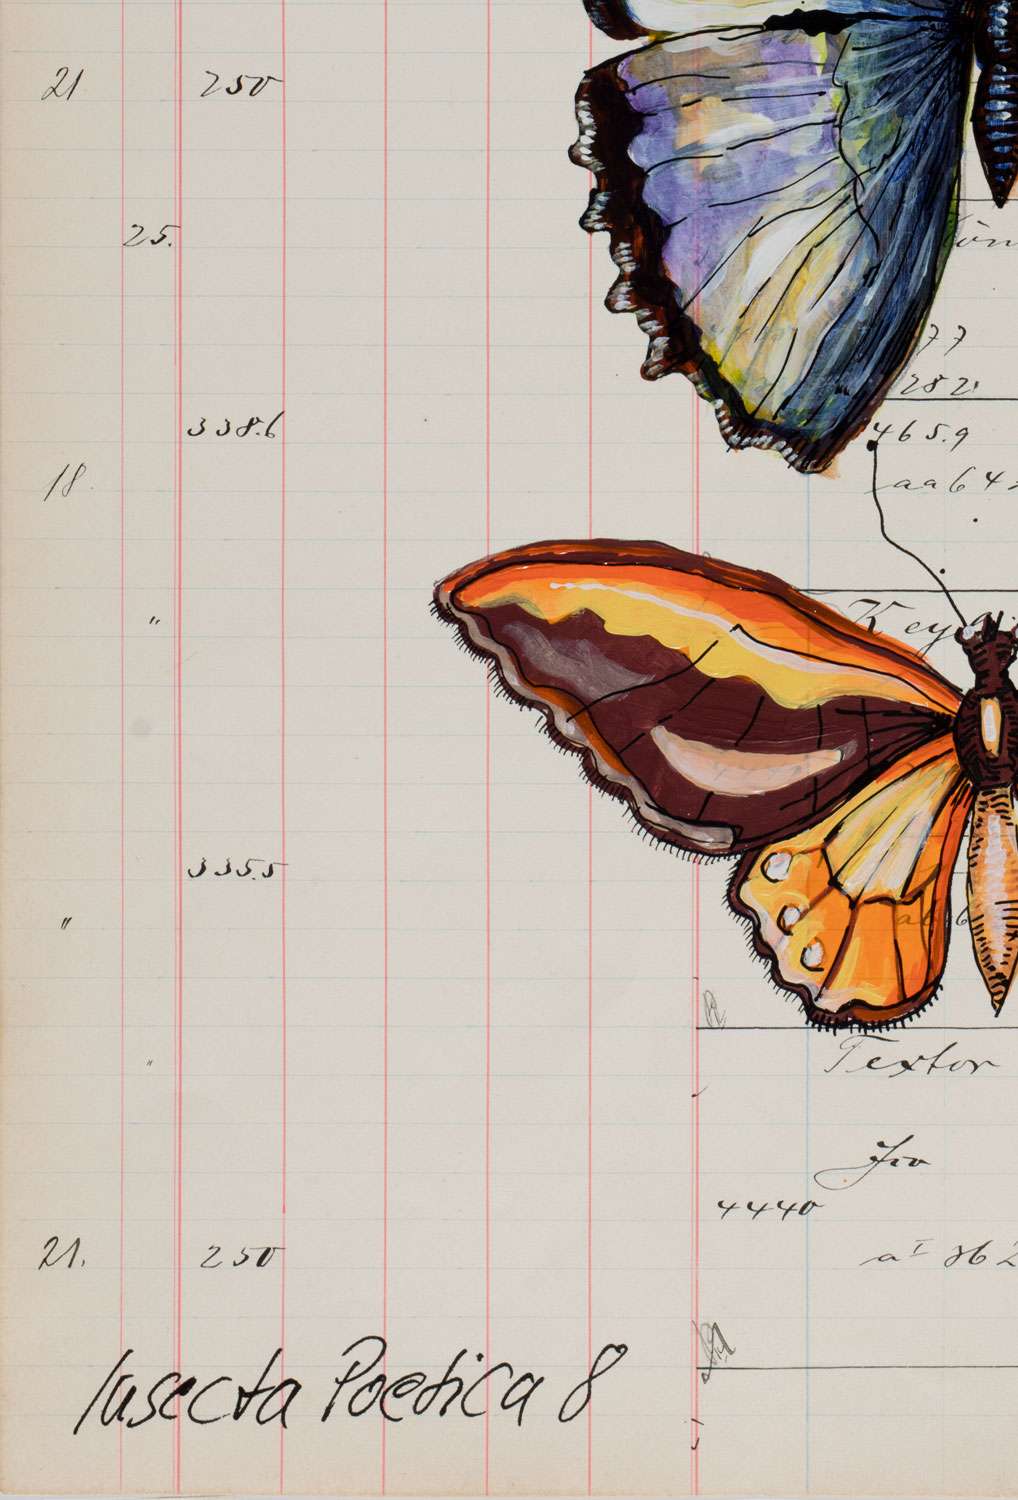 21 250
25.
77
282
338.6 465.9
18. aa 6 4
"
335.5
"
Textor
"
4440
21. 250 a I 862
Insecta Poetica 8